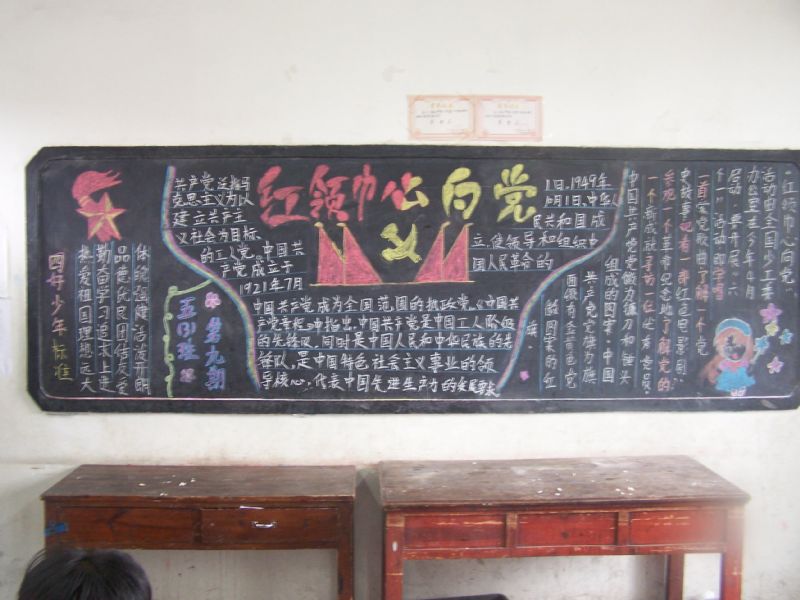 红领巾心向党
共产党运指马
克思主义为以
建立共产主
义社会为目标
的工人党。中国共
产党成立于
1921年7月
1日.1949年
10月1日,中华人
民共和国成
立,健领导和组织中
国人民革命的
中国共产党成为全国范围的执政党。《中国共
产党章程》中指出,中国共产党是中国工人阶级
的先锋队,同时是中国人民和中华民族的先
锋队,是中国特色社会主义事业的领
导核心,代表中国先进生产力的发展要求
第九期
五(3)班
体魄强健活泼开朗
品德优良团结友爱
勤奋学习追求上进
热爱祖国理想远大
四好少年标准
"红领巾心向党"
活动由全国少工委
办公室在今年4月
启动,要开展"六
个一"活动,即学唱
一首爱党歌曲,了解一个党
史故事,观看一部红色电影剧,
参观一个革命纪念地,了解党的
一个新成就,寻访一位优秀党员。
中国共产党党徽为镰刀和锤头
组成的图案。中国
共产党党旗为旗
面缀有金黄色党
徽图案的红
旗